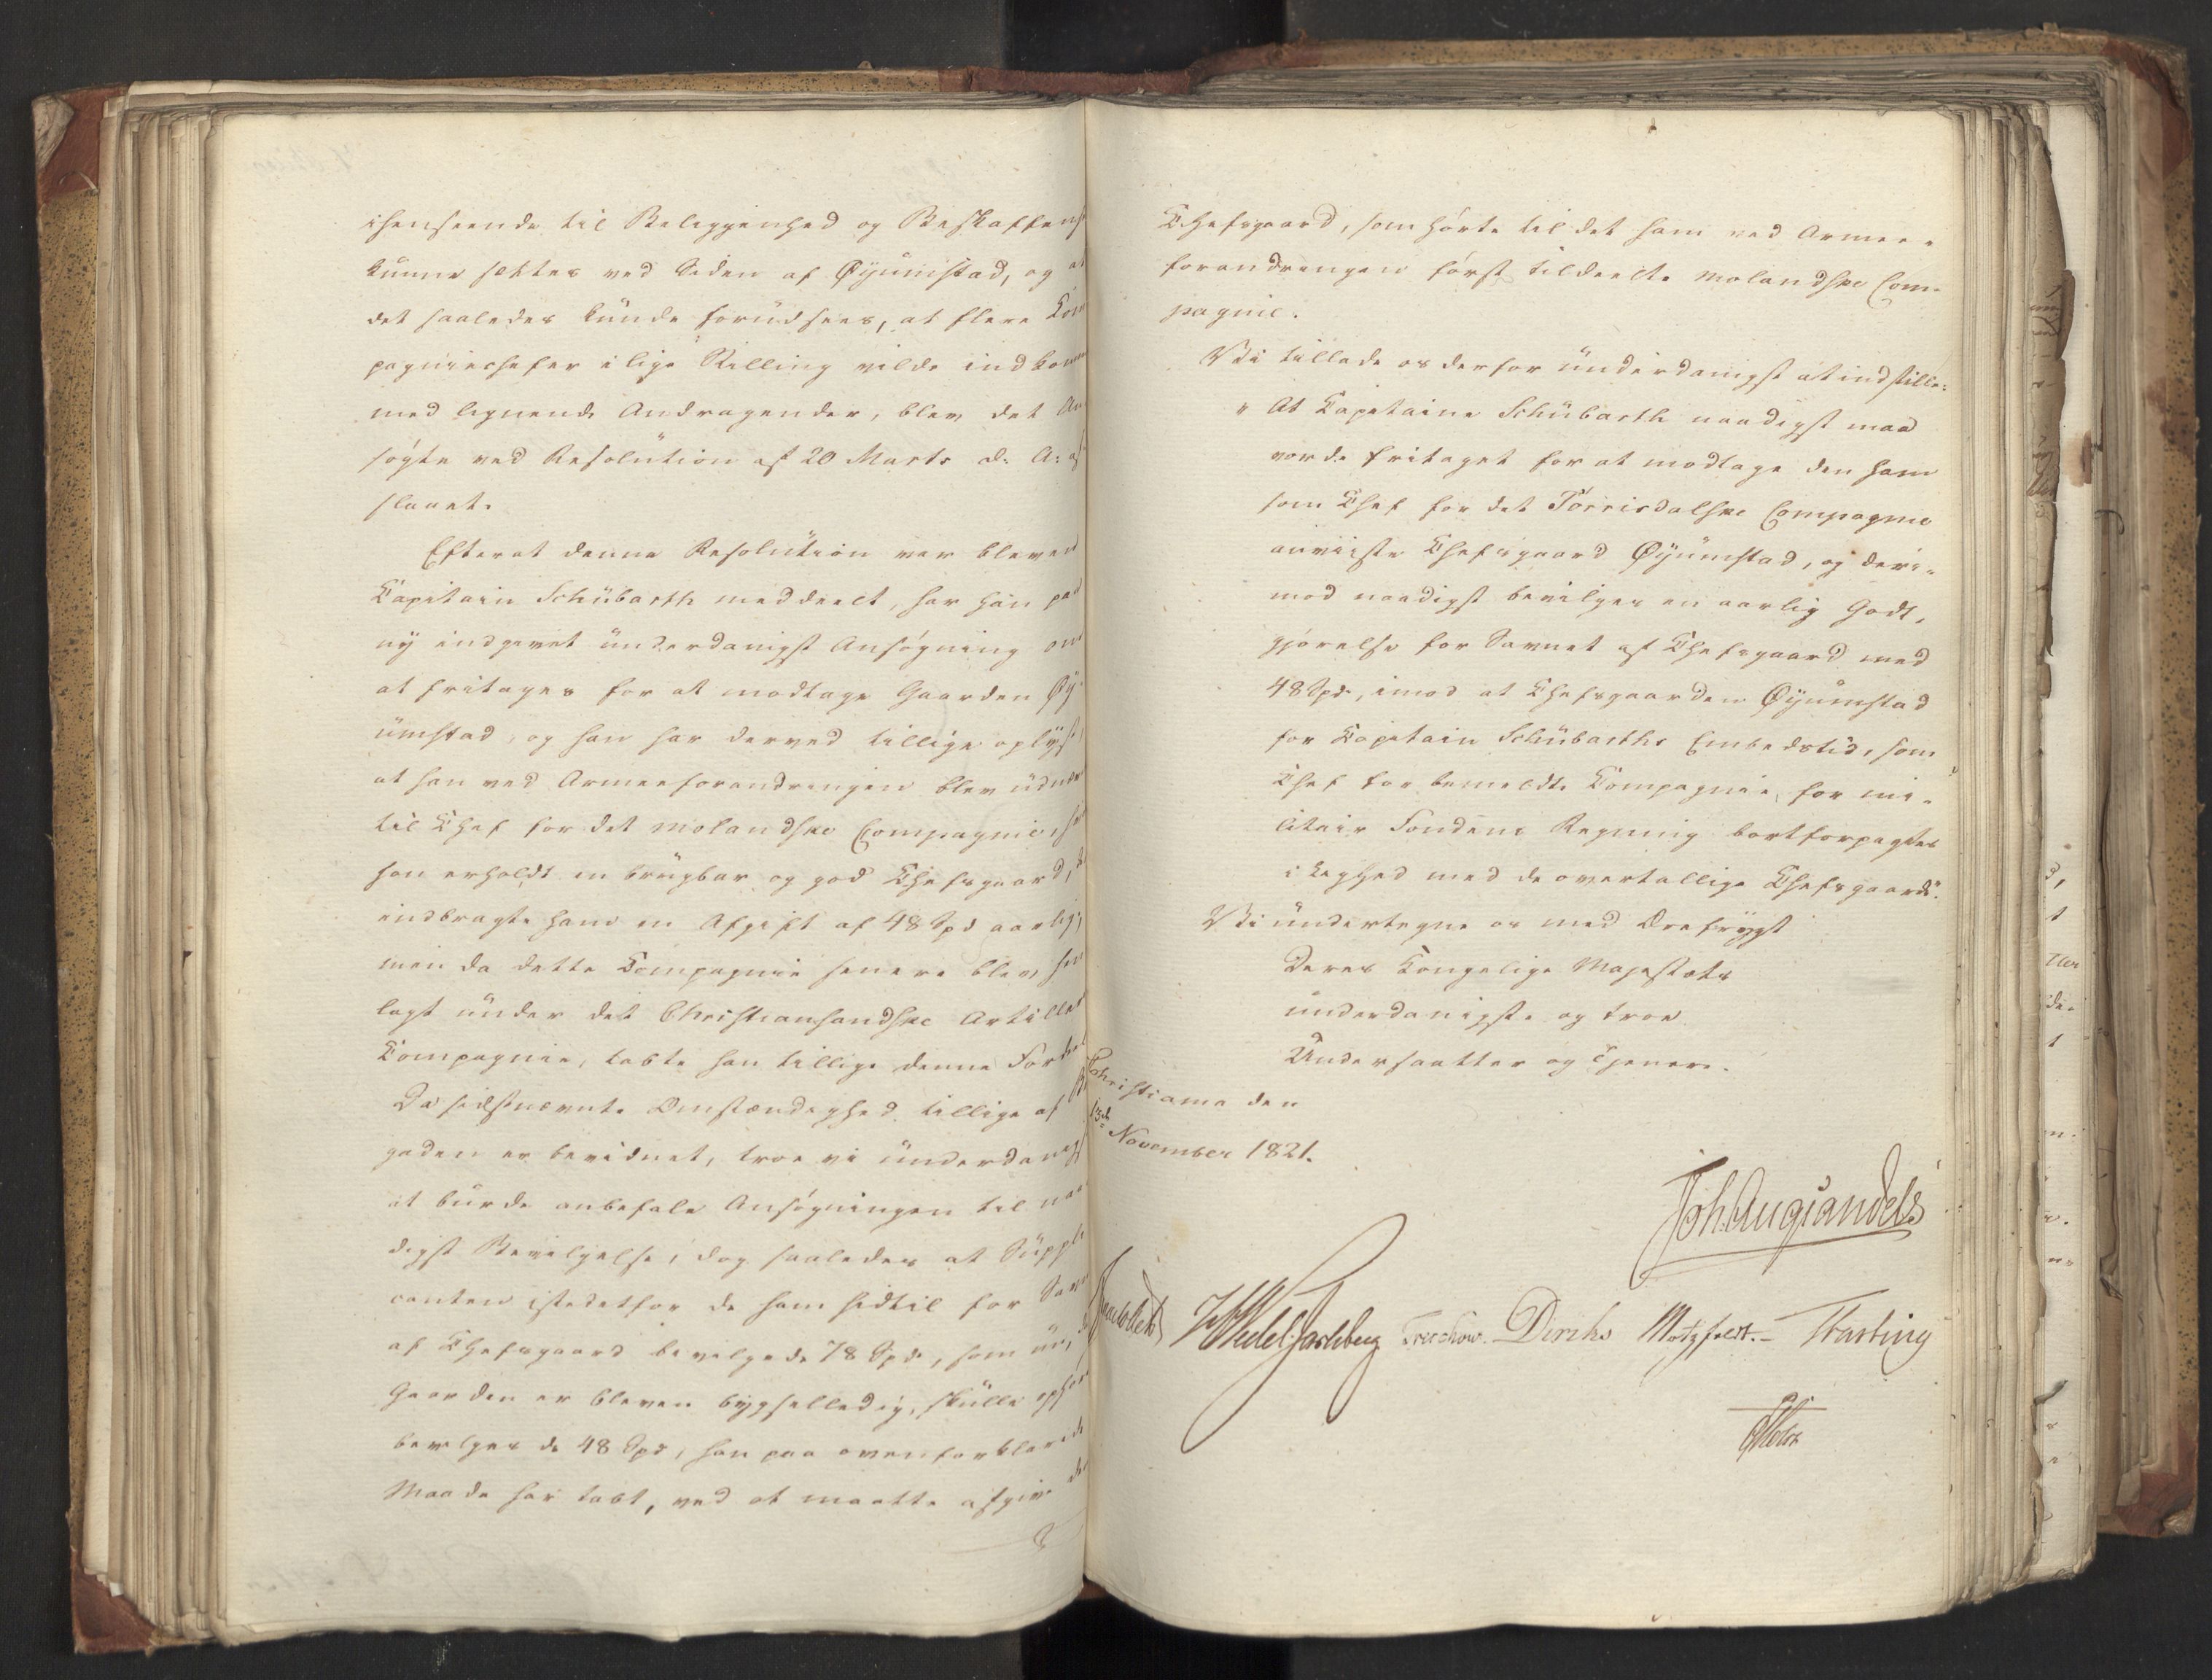 ihenseende til Beliggenhed og Beskaffenh
kunne sættes ved Siden af Øyumstad, og at
det saaledes kunde forudsees, at flere Com
pagniechefer i lige Stilling vilde indkom
med lignende Andragender, blev det An
søgte ved Resolution af 20 Marts d. A. af
slaaet.
Efterat denne Resolution var bleven
Capitain Schübarth meddeelt, har han paa
ny indgivet underdanigst Ansøgning om
at fritages for at modtage Gaarden Øy
umstad, og han har derved tillige oplyst,
at han ved Armeeforandringen blev udnæv
til Chef for det molandske Compagnie,
han erholdt en brugbar og god Chefsgaard,
indbragte ham en Afgift af 48 Spd aarlig,
men da dette Compagnie senere blev hen
lagt under det Christiansandske Artillerie
Compagnie, tabte han tillige denne Fordeel
Da sidstnævnte Omstændighed tillige af Bri
gaden er bevidnet, troe vi underdanigst
at burde anbefale Ansøgningen til naa
digst Bevilgelse, dog saaledes at Suppli
canten istedetfor de ham hidtil for Savn
af Chefsgaard bevilgede 78 Spd, som nu,
Gaarden er bleven bygselledig, skulle ophøre
bevilges de 48 Spd, han paa ovenforklarede
Maade har tabt, ved at maatte afgive den
Chefsgaard, som hørte til det ham ved Armee-
forandringen først tildeelte molandske Com-
pagnie.
Vi tillade os derfor underdanigst at indstille:
"At Capitaine Schübarth naadigst maa
vorde fritaget for at modtage den ham
som Chef for det Torrisdalske Compagnie
anviiste Chefsgaard Øyumstad, og deri-
mod naadigst bevilges en aarlig Godt-
gjørelse for Savnet af Chefsgaard med
48 Spd, imod at Chefsgaarden Øyumstad
for Capitain Schübarths Embedstid, som
Chef for bemeldte Compagnie, for mi-
litair Fondens Regning bortforpagtes
i Lighed med de overtallige Chefsgaarde".
Vi undertegne os med Ærefrygt
Deres Kongelige Majestæts
underdanigste og troe
Undersaatter og Tjenere.
Christiania den
13de November 1821.
Joh. Aug. Sandels
Sommerhielm HWedel Jarlsberg Treschow Diriks Motzfeldt. Fasting
Holst